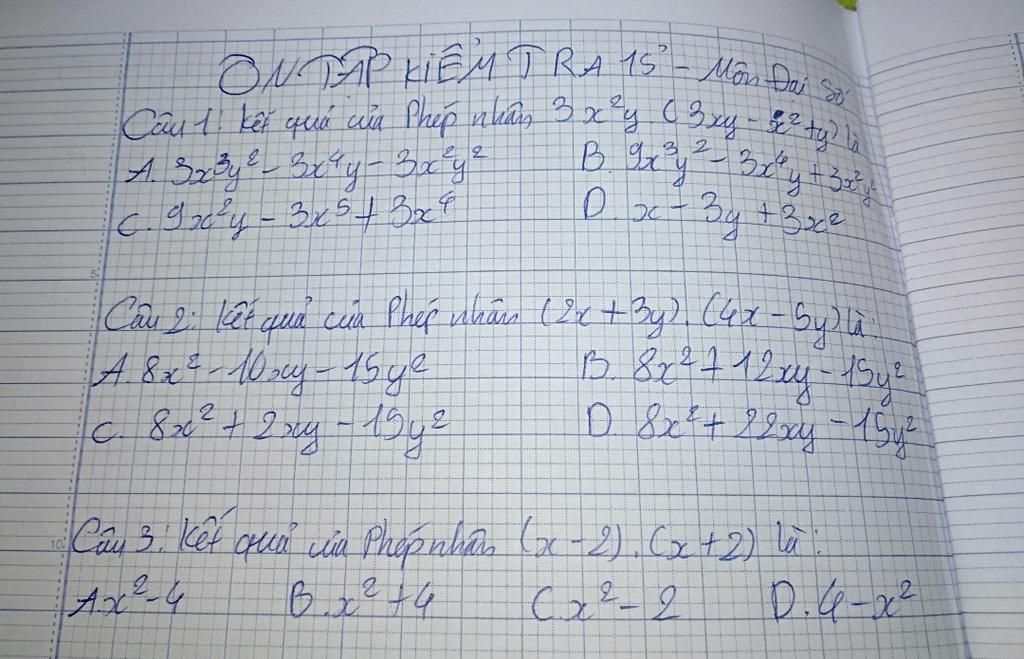 ÔN TẬP KIỂM TRA 15' - Môn Đại Số
Câu 1: Kết quả của Phép nhân 3x²y (3xy - x² + y) là
A. 3x³y² - 3x⁴y - 3x²y² B. 9x³y² - 3x⁴y + 3x²y²
C. 9x²y - 3x⁵ + 3x⁴ D. x - 3y + 3x²
5
Câu 2: Kết quả của Phép nhân (2x + 3y).(4x - 5y) là:
A. 8x² - 10xy - 15y² B. 8x² + 12xy - 15y²
C. 8x² + 2xy - 15y² D. 8x² + 22xy - 15y²
10 Câu 3: Kết quả của Phép nhân (x - 2).(x + 2) là:
A. x² - 4 B. x² + 4 C. x² - 2 D. 4 - x²